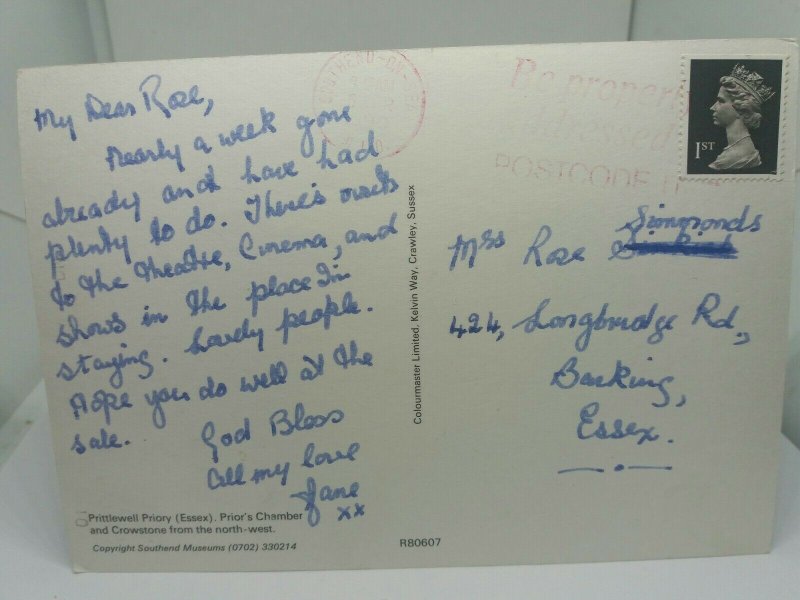 My Dear Rose,
Nearly a week gone
already and have had
plenty to do. There's visits
to the Theatre, Cinema, and
shows in the place I'm
staying. Lovely people.
Hope you do well at the
sale.
God Bless
All my love
Jane
xx
Prittlewell Priory (Essex). Prior's Chamber
and Crowstone from the north-west.
Copyright Southend Museums (0702) 330214
R80607
Colourmaster Limited, Kelvin Way, Crawley, Sussex
SOUTHEND-ON-SEA
Be properly
addressed
POSTCODE IT
1ST
Simmonds
Mrs Rose
424, Longbridge Rd.,
Barking,
Essex.